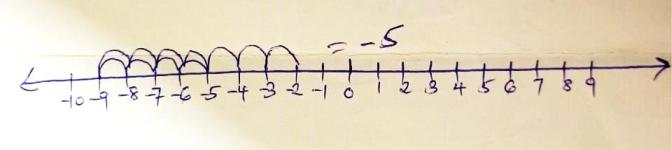 = -5
-10 -9 -8 -7 -6 -5 -4 -3 -2 -1 0 1 2 3 4 5 6 7 8 9